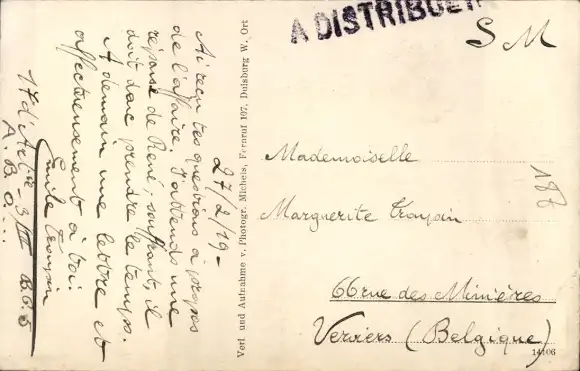 A DISTRIBUER
S M
27/2/19-
Ai reçu tes questions à propos
de l'affaire, j'attends une
réponse de René, souffrant, il
doit donc prendre le temps.
A demain une lettre et
affectueusement à toi.
Emile
17 d'Artie 3/III
A. B. O...
Verl. und Aufnahme v. Photogr. Michels, Fernruf 107, Duisburg W. Ort
Mademoiselle
Marguerite
188
66 rue des Minières
Verviers (Belgique)
14106